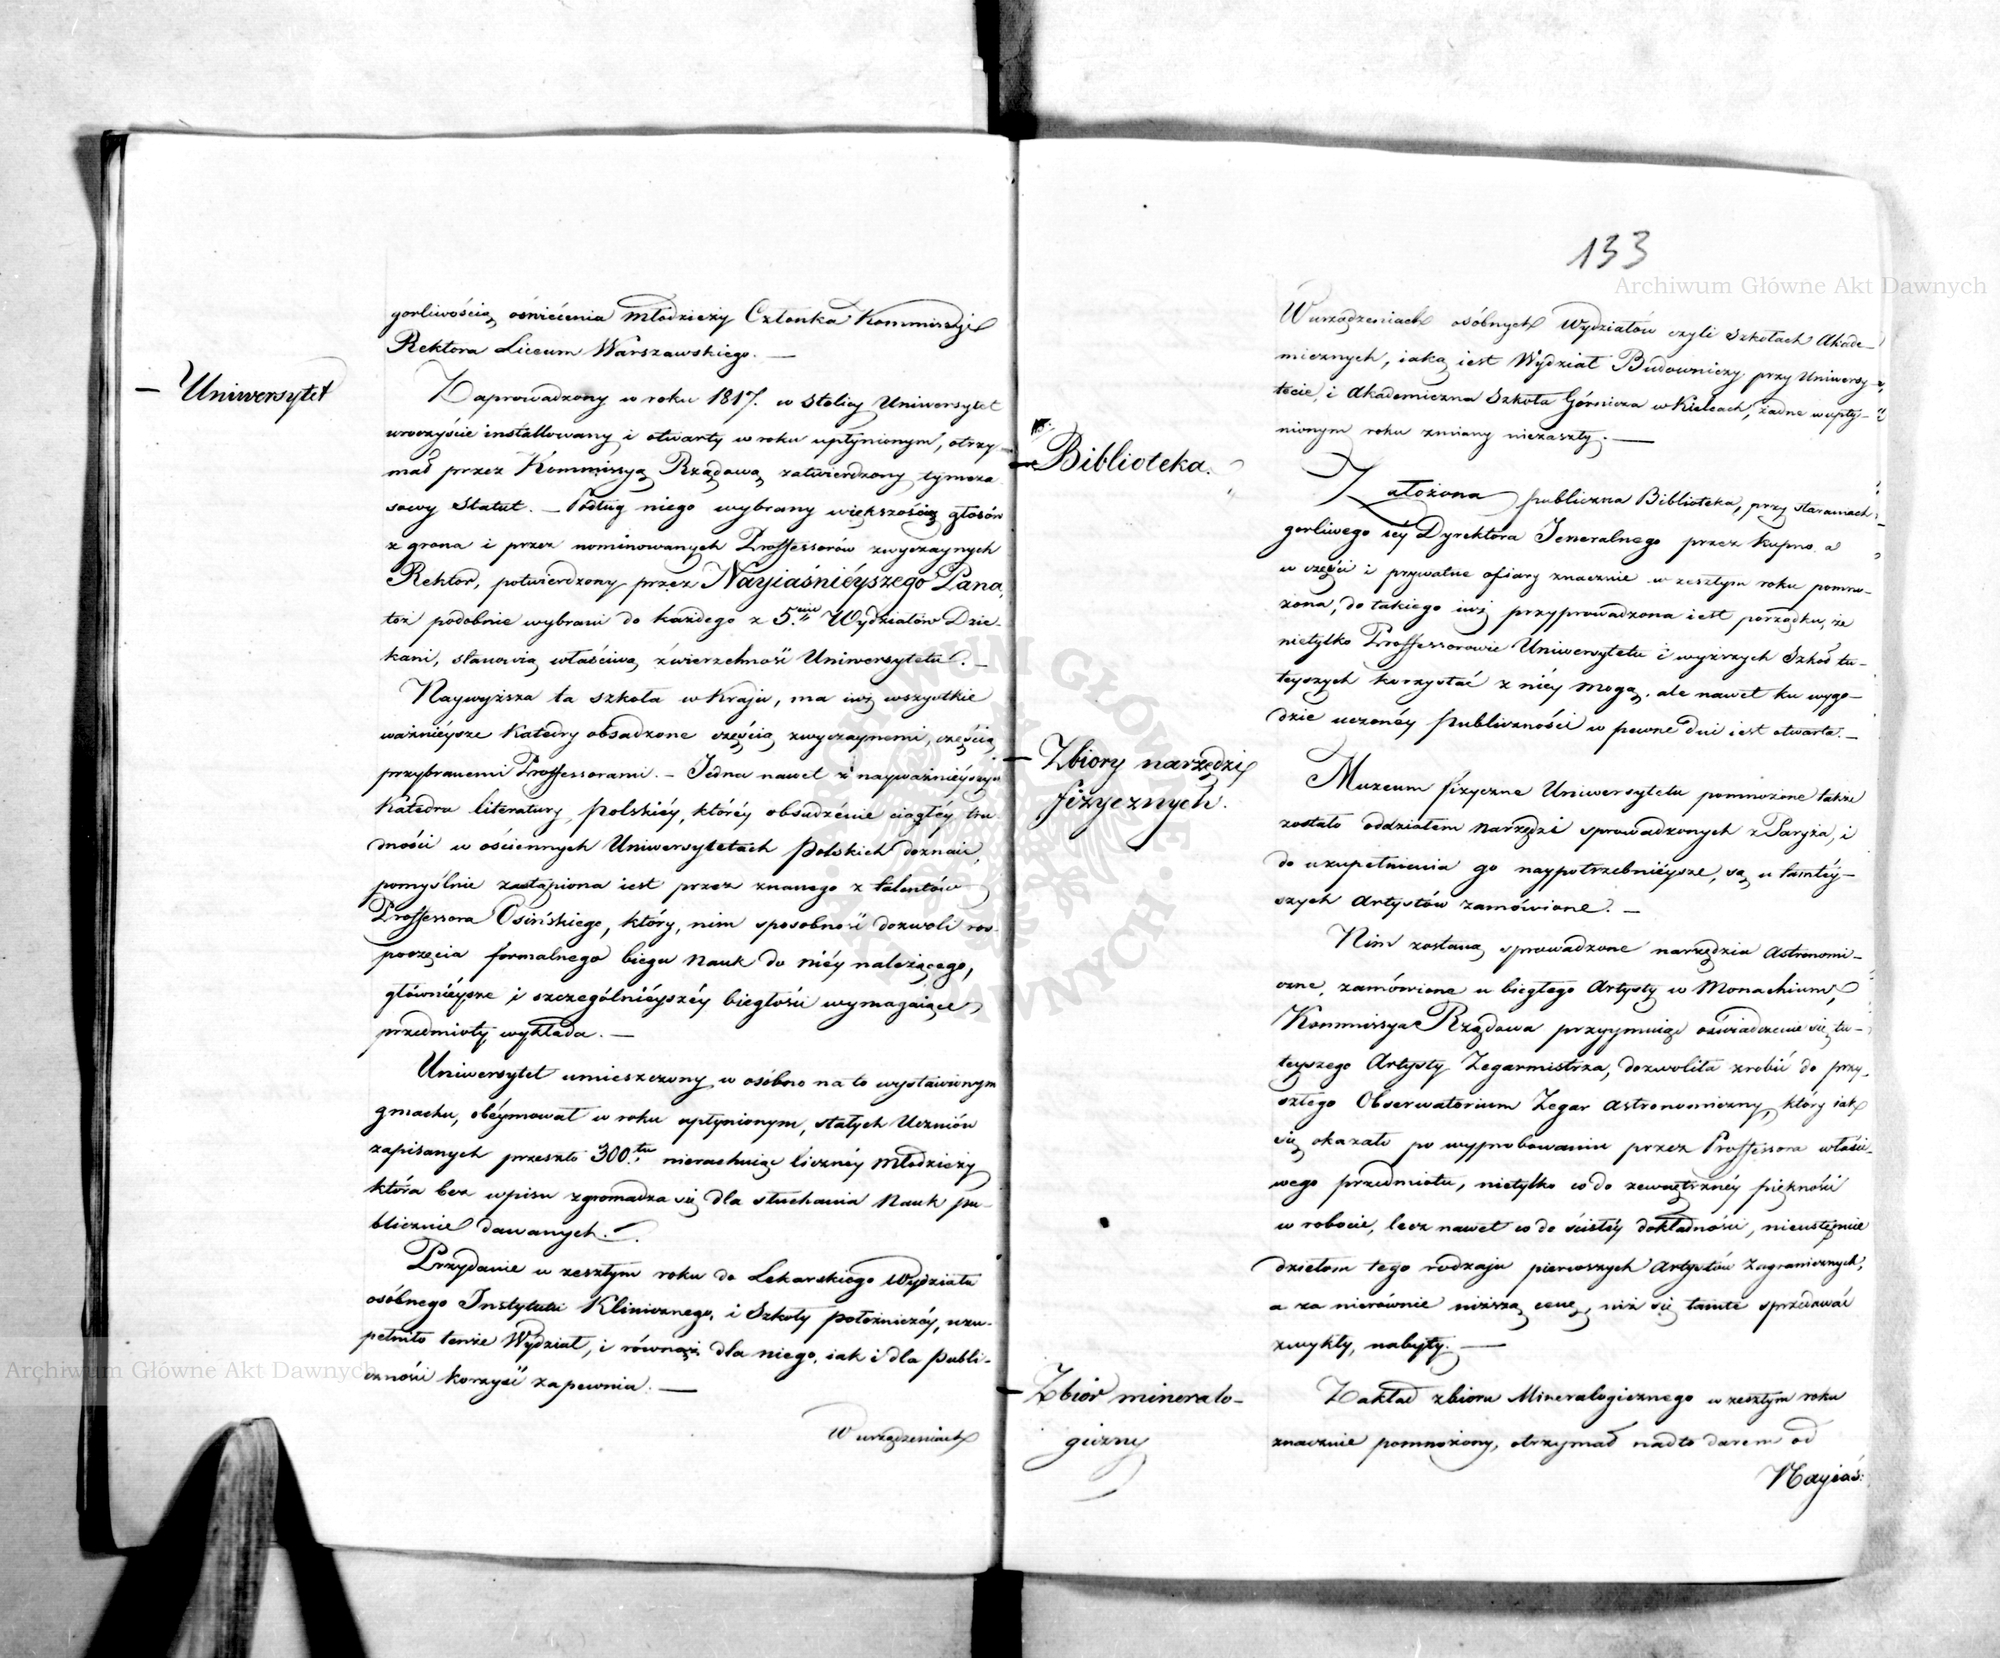 gorliwością oświécenia Młodzieży Członka Kommissyi
Rektora Liceum Warszawskiego. —
— Uniwersytet
Zaprowadzony w roku 1817. w Stolicy Uniwersytet
uroczyście installowany i otwarty w roku upłynionym, otrzy-
mał przez Kommissyą Rządową zatwierdzony tymcza
sowy Statut. — Podług niego wybrany większością głosów
z grona i przez nominowanych Professorów zwyczaynych
Rektor, potwierdzony przez Nayiaśniéyszego Pana,
toż podobnie wybrani do każdego z 5.ciu Wydziałów Dzie-
kani, stanowią właściwą zwierzchność Uniwersytetu. —
Naywyższa ta szkoła w Kraju, ma iuż wszystkie
ważniéysze Katedry obsadzone częścią zwyczaynemi, częścią
przybranemi Professorami. — Jedna nawet z nayważniéyszych
Katedra literatury polskiéy, któréy obsadzenie ciągłéy tru
dności w ościennych Uniwersytetach polskich doznaie,
pomyślnie zastąpiona iest przez znanego z talentów
Professora Osińskiego, który, nim sposobność dozwoli roz-
poczęcia formalnego biegu Nauk do niéy należącego,
główniéysze i szczególniéyszéy biegłości wymagaiące
przedmioty wykłada. —
Uniwersytet umieszczony w osóbno na to wystawionym
gmachu, obéymował w roku upłynionym, stałych Uczniów
zapisanych przeszło 300.tu nierachuiąc licznéy Młodzieży
która bez wpisu zgromadza się dla słuchania Nauk pu-
blicznie dawanych.
Przydanie w zeszłym roku do Lekarskiego Wydziału
osóbnego Instytutu Klinicznego, i Szkoły położniczéy, uzu-
pełniło tenże Wydział, i równąż dla niego, iak i dla publi-
czności korzyść zapewnia. —
W urządzeniach
133
W urządzeniach osóbnych Wydziałów czyli Szkołach Akade-
micznych, iaką iest Wydział Budowniczy przy Uniwersy-
tecie i Akademiczna Szkoła Górnicza w Kielcach, żadne w upły-
nionym roku zmiany niezaszły. —
— Biblioteka.
Założona publiczna Biblioteka, przy staraniach
gorliwego iéy Dyrektora Jeneralnego przez kupno a
w części i prywatne ofiary znacznie w zeszłym roku pomno-
żona, do takiego iuż przyprowadzona iest porządku, że
nietylko Professorowie Uniwersytetu i wyższych Szkół tu-
teyszych korzystać z niéy mogą, ale nawet ku wygo-
dzie uczonéy publiczności w pewne dni iest otwarta. —
— Zbiory narzędzi
fizycznych.
Muzeum fizyczne Uniwersytetu pomnożone także
zostało oddziałem narzędzi sprowadzonych z Paryża, i
do uzupełnienia go naypotrzebniéysze, są u tamtéy-
szych Artystów zamówione. —
Nim zostaną sprowadzone narzędzia Astronomi-
czne, zamówione u biegłego Artysty w Monachium,
Kommissya Rządowa przyymuiąc oświadczenie się tu-
teyszego Artysty Zegarmistrza, dozwoliła zrobić do przy-
szłego Obserwatorium Zegar Astronomiczny, który iak
się okazało po wyprobowaniu przez Professora właści-
wego przedmiotu, nietylko co do zewnętrznéy piękności
w robocie, lecz nawet co do ścisłéy dokładności, nieustępuie
dziełom tego rodzaju pierwszych Artystów zagranicznych,
a za nierównie niższą cenę, niż się tamte sprzedawać
zwykły, nabyty. —
— Zbiór mineralo-
giczny
Zakład zbioru Mineralogicznego w zeszłym roku
znacznie pomnożony, otrzymał nadto darem od
Nayiaś:
Archiwum Główne Akt Dawnych
Archiwum Główne Akt Dawnych